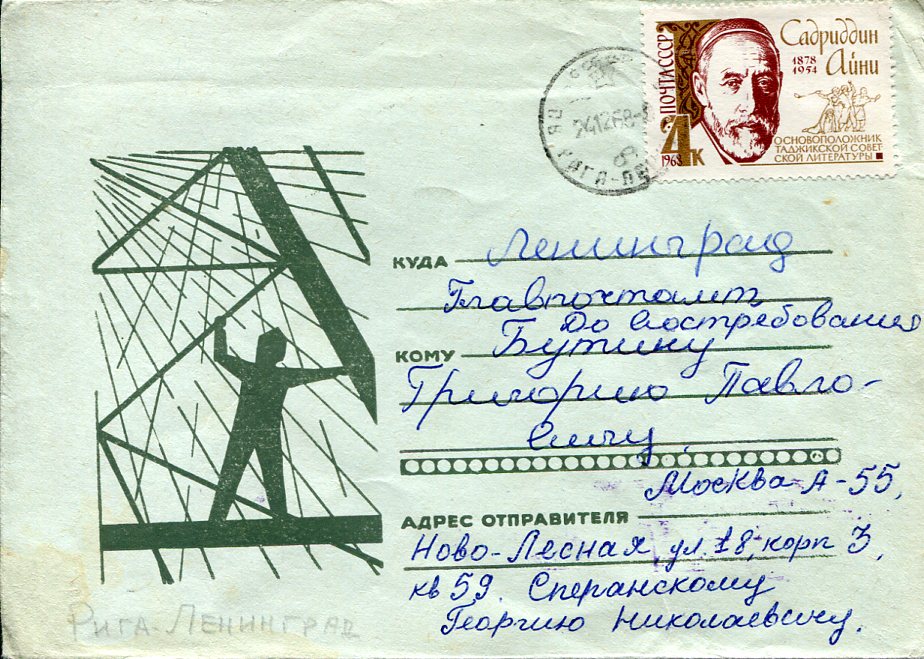 ПОЧТА СССР
Садриддин
Айни
1878
1954
ОСНОВОПОЛОЖНИК
ТАДЖИКСКОЙ СОВЕТ
СКОЙ ЛИТЕРАТУРЫ
4к
1968
241268
РИГА
КУДА Ленинград
Главпочтамт
До востребования
КОМУ Бутину
Григорию Павло-
вичу.
Москва А-55,
АДРЕС ОТПРАВИТЕЛЯ
Ново-Лесная, ул. 18, корп 3,
кв 59. Сперанскому
Георгию Николаевичу.
РИГА-ЛЕНИНГРАД